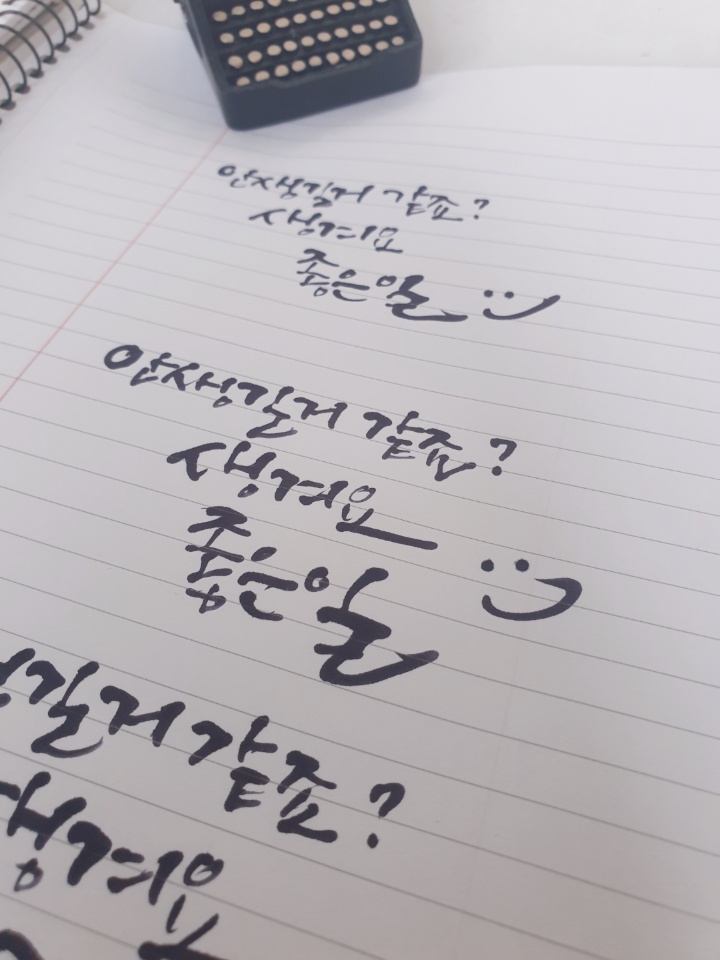 안생길거 같죠?
생겨요
좋은일
안생길거 같죠?
생겨요
좋은일
길거 같죠?
생겨요